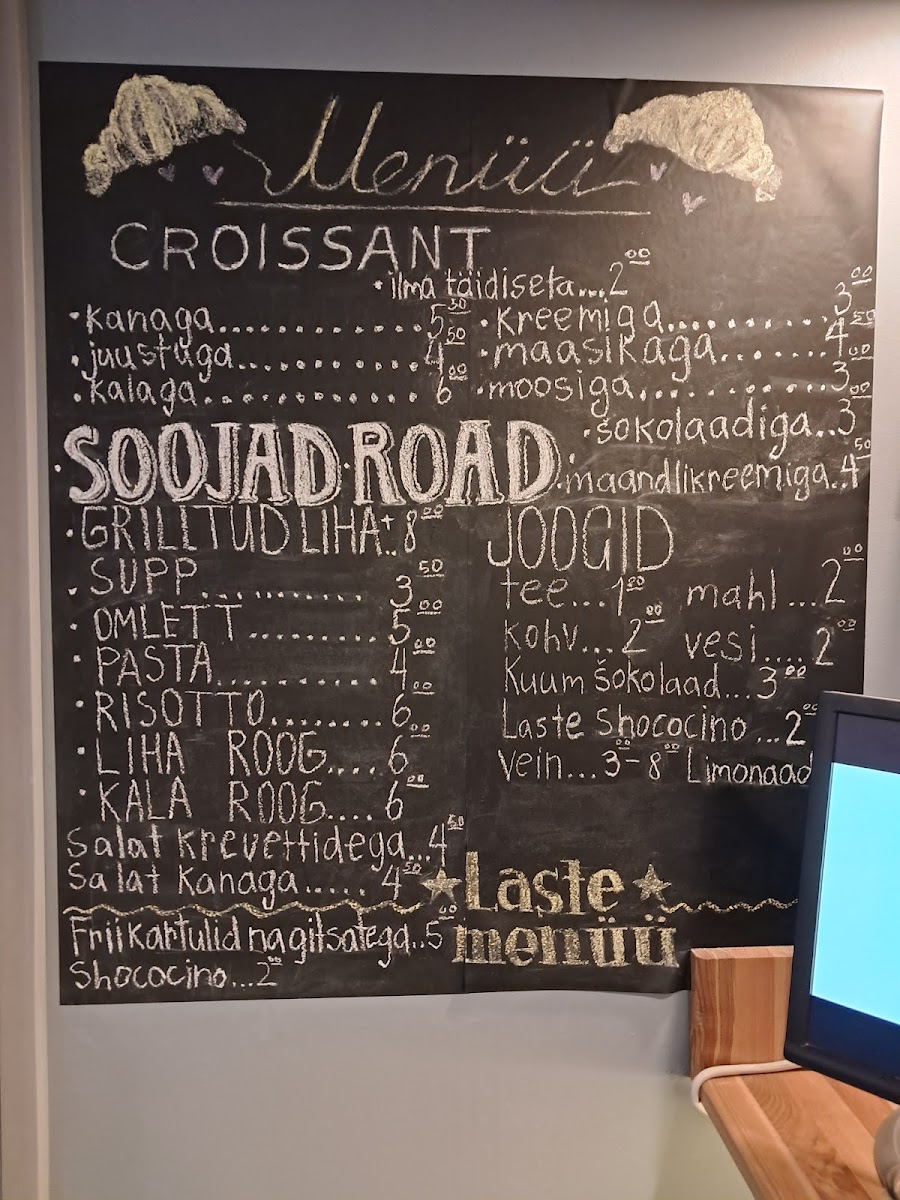 Menüü
CROISSANT
• ilma täidiseta...2.00
• kanaga...............5.50
• juustuga.............4.50
• kalaga...............6.00
• kreemiga...........3.00
• maasikaga.........4.50
• moosiga............3.00
• šokolaadiga..3.00
• maandlikreemiga..4.50
• SOOJAD ROAD
• GRILLTUD LIHA+..8.00
• SUPP............3.50
• OMLETT..........5.00
• PASTA...........4.00
• RISOTTO........6.00
• LIHA ROOG....6.00
• KALA ROOG....6.00
Salat krevettidega...4.50
Salat Kanaga.....4.50
JOOGID
tee...1.00 mahl...2.00
kohv...2.00 vesi....2.00
Kuum šokolaad...3.00
Laste Shococino...2.00
vein...3.00-8.00 Limonaad
Laste
menüü
Friikartulid nagitsatega..5.00
Shococino...2.00